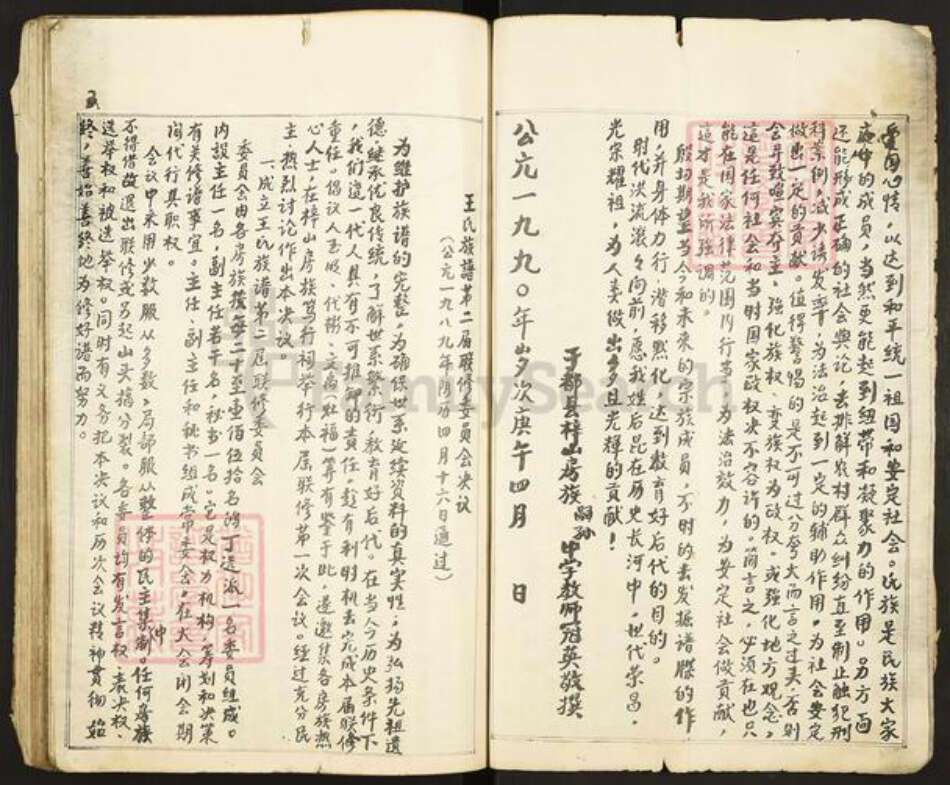 爱国心情，以达到和平统一祖国和安定社会。氏族是民族大家
庭中的成员，当然更能起到纽带和凝聚力的作用。另方面
还能形成正确的社会舆论，去排解农村群众纠纷直至制止触犯刑
科案例，减少诱发率，为法治起到一定的辅助作用。为社会安定
做出一定的贡献。值得警惕的是不可过分夸大而言之过美，否则
会导致喧宾夺主，强化族权、变族权为政权。或强化地方观念，
这是任何社会和当时国家政权决不容许的。简言之，必须在也只
能在国家法律范围内行莫，为法治效力，为安定社会做贡献，
这才是我所强调的。
殷切期望当今和未来的宗族成员，不时的去发掘谱牒的作
用，并身体力行，潜移默化，达到教育好后代的目的。
时代洪流滚々向前，愿我姓后昆在历史长河中，世代荣昌，
光宗耀祖，为人类做出多多且光辉的贡献！
于都县梓山房族 嗣孙 中学教师冠英敬撰
公元一九九〇年岁次庚午四月 日
王氏族谱第二届联修委员会决议
（公元一九八九年月功四月十六日通过）
为维护族谱的完整，为确保世系延续资料的真实性，为弘扬先祖遗
德，继承优良传统，了解世系繁衍，教育好后代。在当今历史条件下
，我们这一代人具有不可推卸的责任。趁有利时机去完成本届联修
重任。倡议人玉眼、代楷、文高（壮福）等有鉴于此，遂邀集各房族热
心人士，在梓山房族笃行祠举行本届联修第一次会议。经过充分民
主，热烈讨论作出本决议。
一、成立王氏族谱第二届联修委员会
委员会由各房族按每二十至壹佰伍拾名鸿丁选派一名委员组成。
内设主任一名，副主任若干名，秘书一名。它是权力机构，筹划和决策
有关修谱事宜。主任、副主任和秘书组成常委会。在大会闭会期
间代行其职权。
会议中采用少数服从多数，局部服从整体的民主集中制。任何房族
不得借故退出联修或另起山头搞分裂。各委员均有发言权、表决权、
选举权和被选举权。同时有义务把本决议和历次会议精神贯彻始
终，善始善终地为修好谱而努力。
FamilySearch